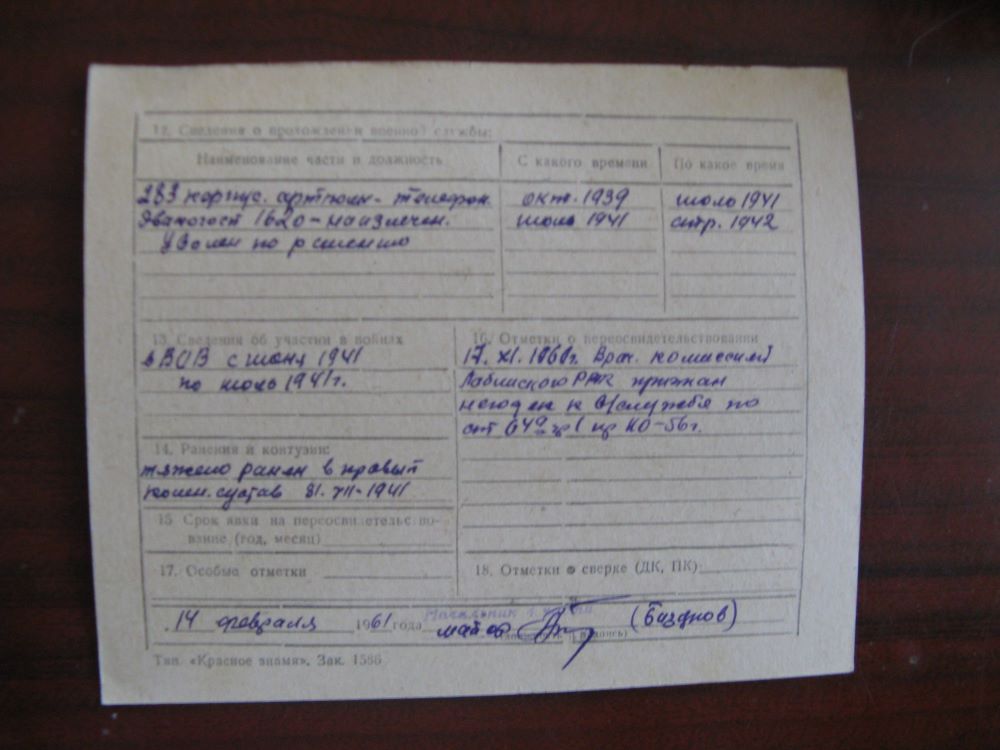 12. Сведения о прохождении военной службы:
Наименование части и должность
С какого времени
По какое время
283 корпус. артполк - телефон.
окт. 1939
июль 1941
Эвакогосп 1620 - на излечен.
июль 1941
апр. 1942
Уволен по ранению
13. Сведения об участии в войнах
в ВОВ с июня 1941
по июль 1941г.
14. Ранения и контузии:
тяжело ранен в правый
колен. сустав 31. VII - 1941
15. Срок явки на переосвидетельствование (год, месяц)
16. Отметки о переосвидетельствовании
17. XI. 1960г. Врач. комиссией
Лабинского РВК признан
негоден к в/службе по
ст 64 гр I пр НО-56г.
17. Особые отметки
18. Отметки о сверке (ДК, ПК):
14 февраля 1961 года
Начальник
майор
(подпись)
Тип. «Красное знамя». Зак. 1586